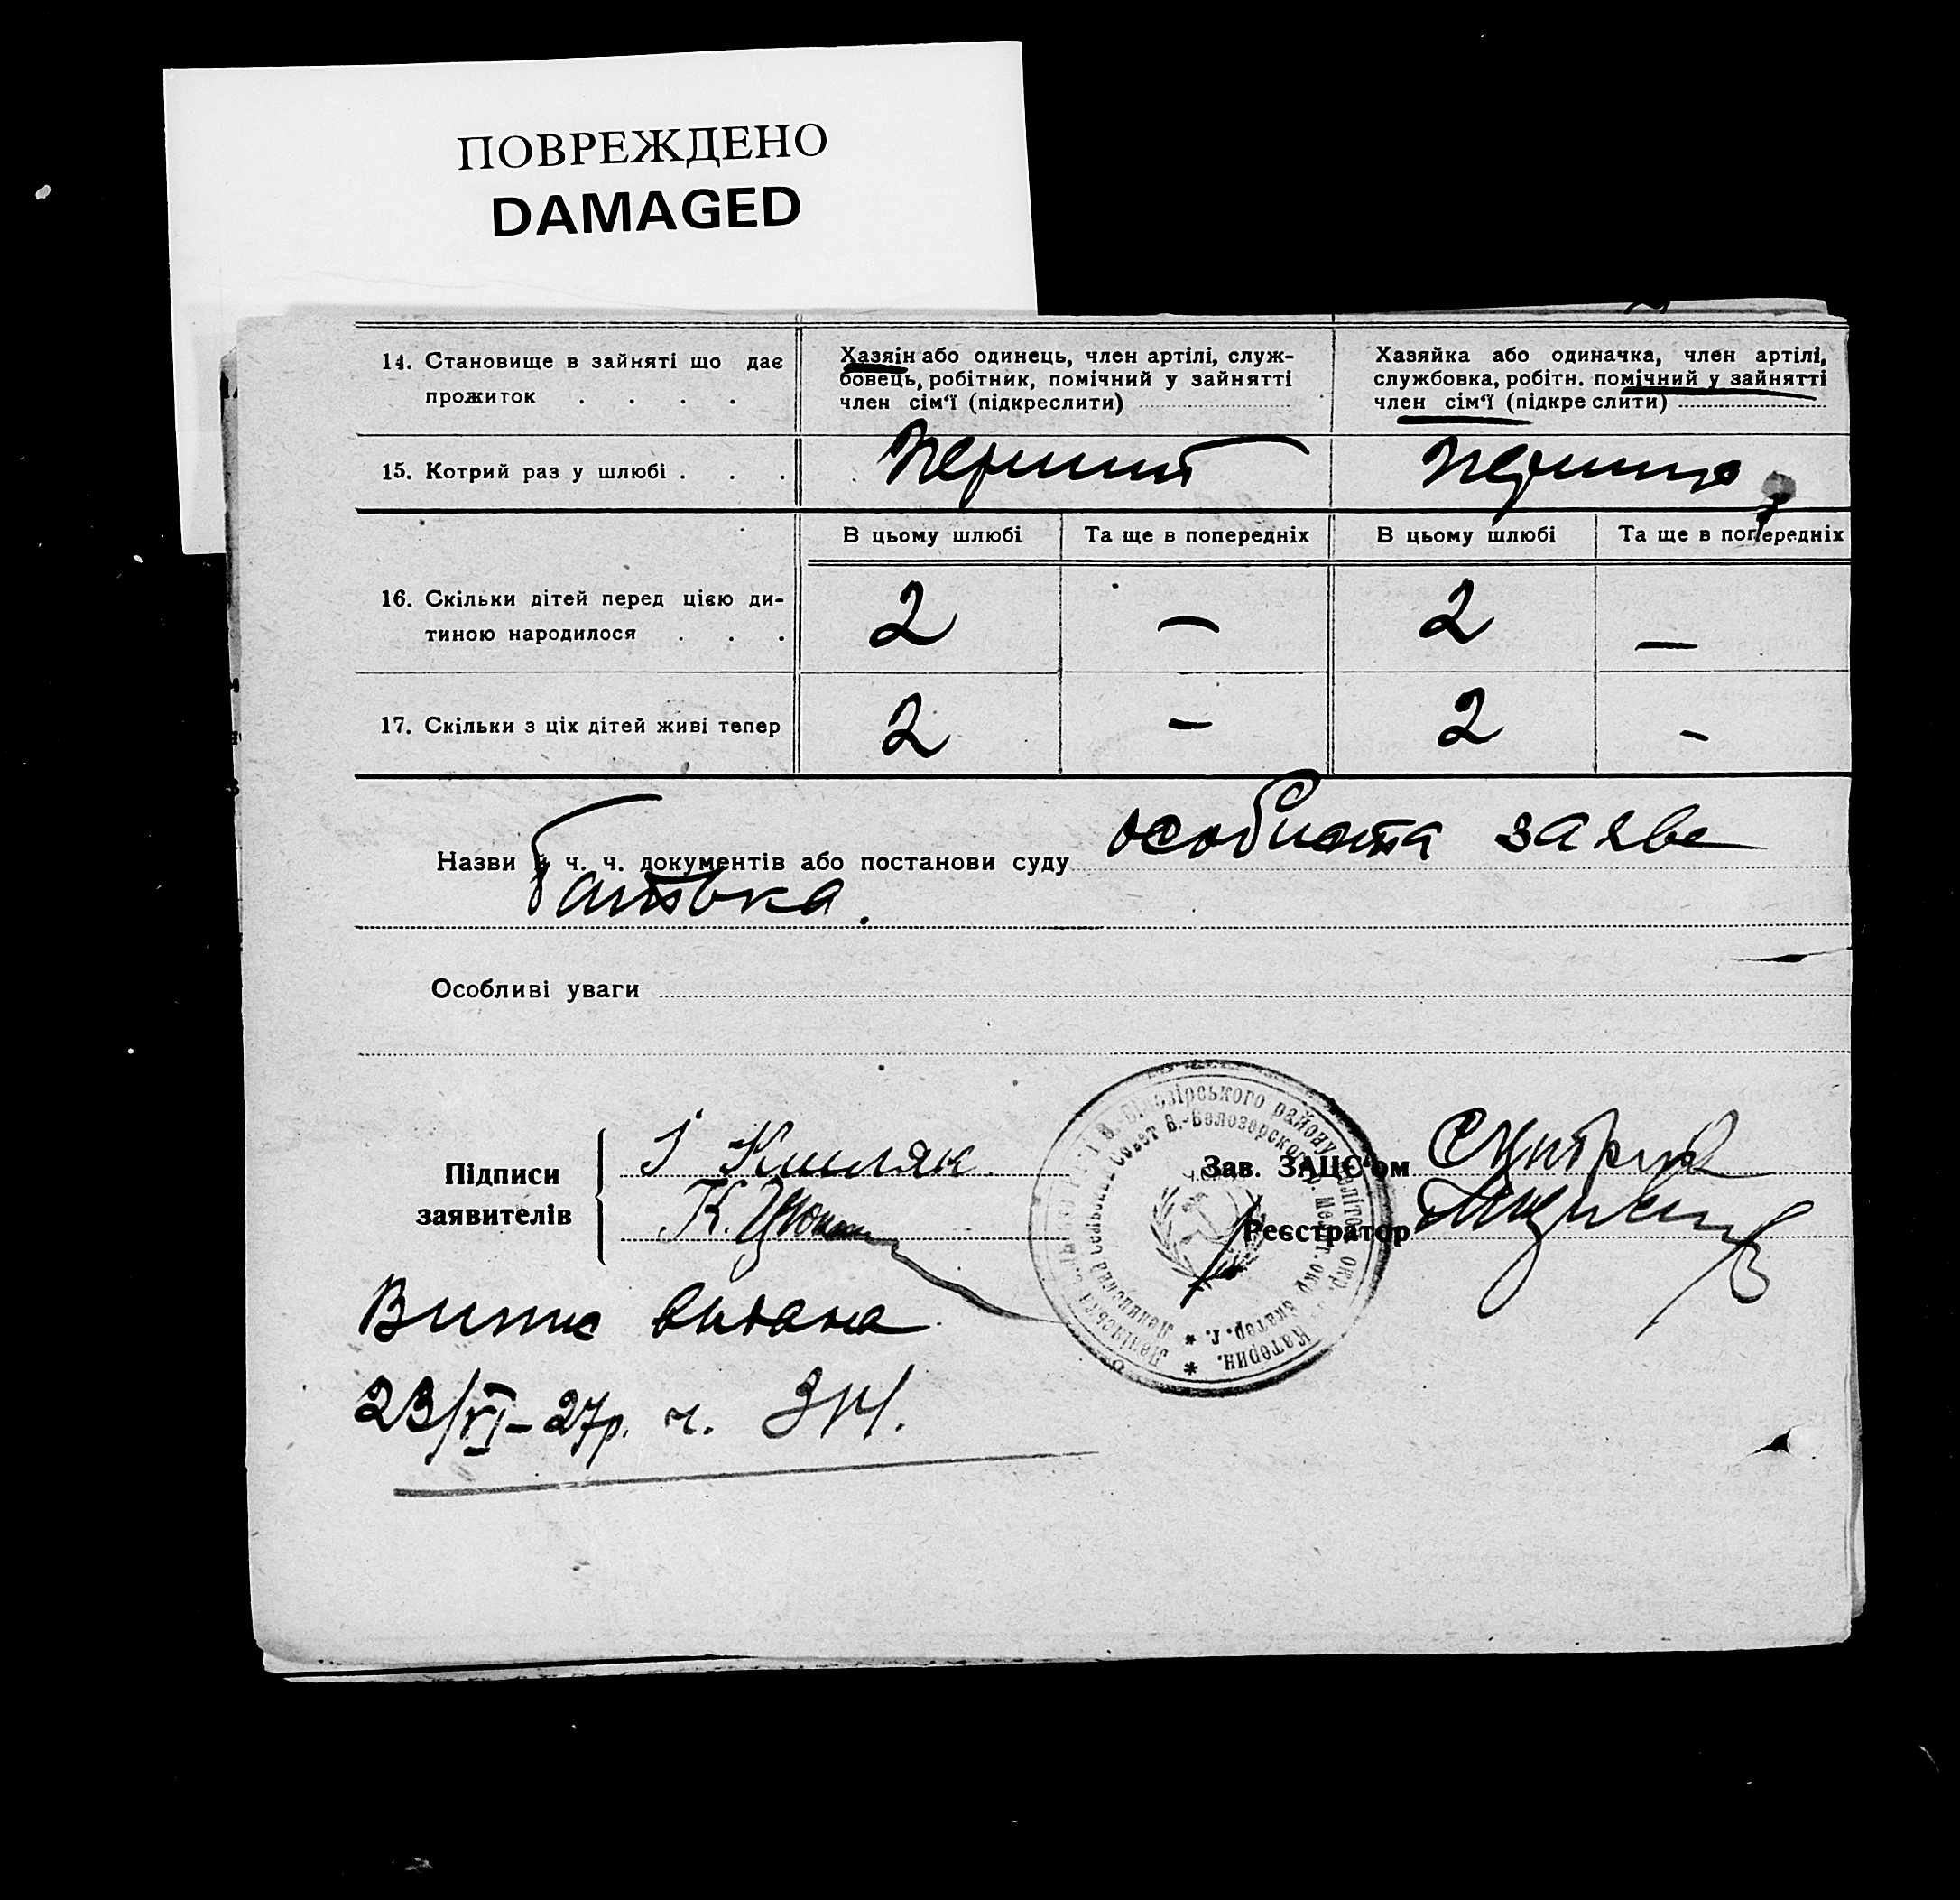 ПОВРЕЖДЕНО
DAMAGED
14. Становище в зайняті що дає
прожиток . . . .
Хазяін або одинець, член артілі, служ-
бовець, робітник, помічний у зайнятті
член сім'ї (підкреслити)
Хазяйка або одиначка, член артілі,
службовка, робітн. помічний у зайнятті
член сім'ї (підкреслити)
15. Котрий раз у шлюбі . . .
перший
перший
В цьому шлюбі
Та ще в попередніх
В цьому шлюбі
Та ще в попередніх
16. Скільки дітей перед цією ди-
тиною народилося . . .
2
—
2
—
17. Скільки з ціх дітей живі тепер
2
-
2
-
Назви й ч. ч. документів або постанови суду особиста заява
батька.
Особливі уваги
Підписи
заявителів
І Кишляк
К.
Зав. ЗАЦС'ом
Реєстратор
Випис видана
23/VI-27р. ч.